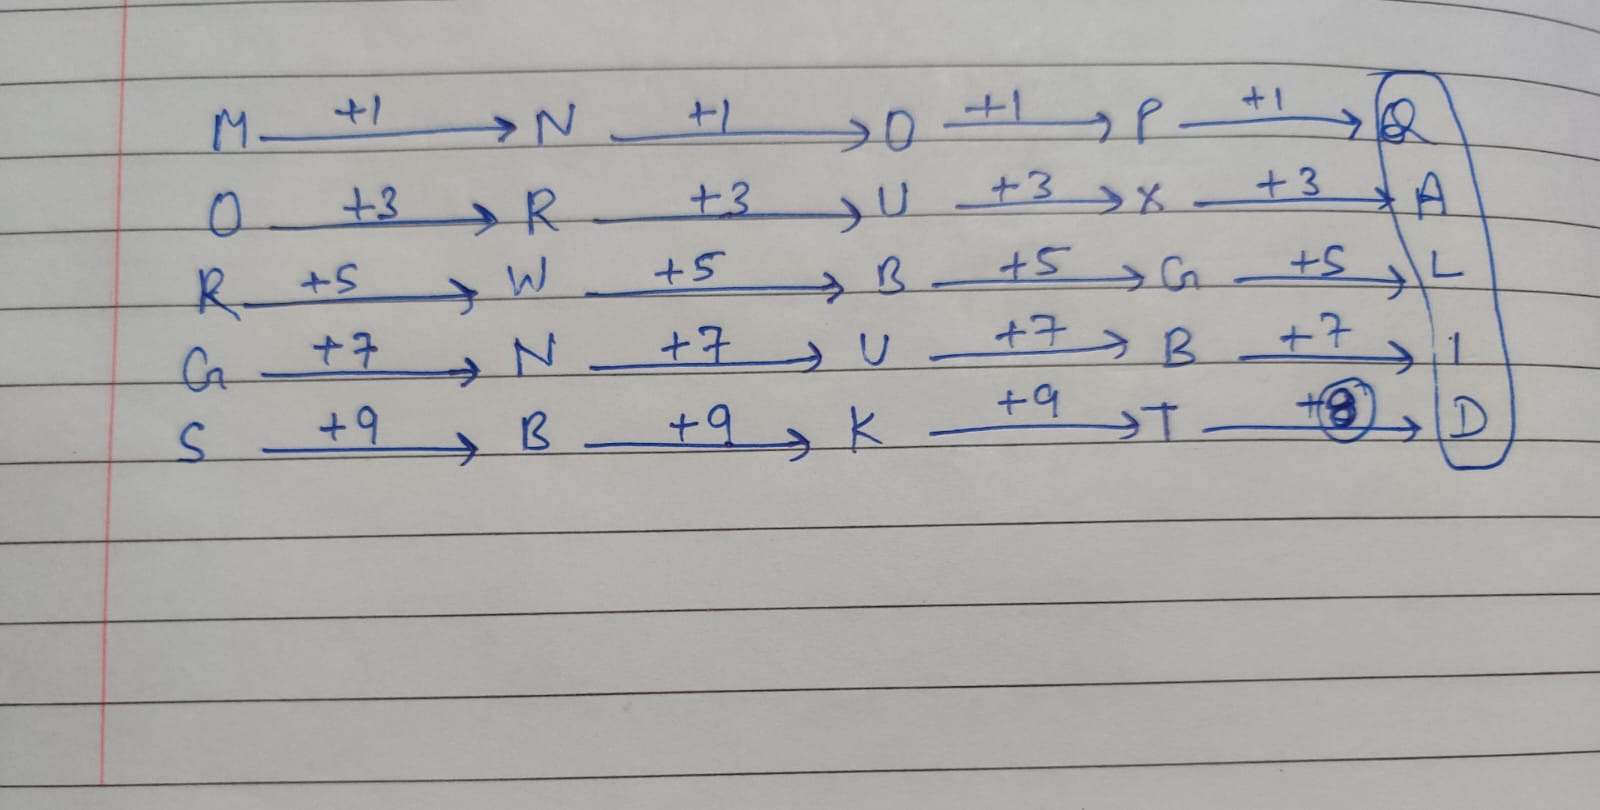 M +1 → N +1 → O +1 → P +1 → Q
O +3 → R +3 → U +3 → X +3 → A
R +5 → W +5 → B +5 → G +5 → L
G +7 → N +7 → U +7 → B +7 → I
S +9 → B +9 → K +9 → T + → D